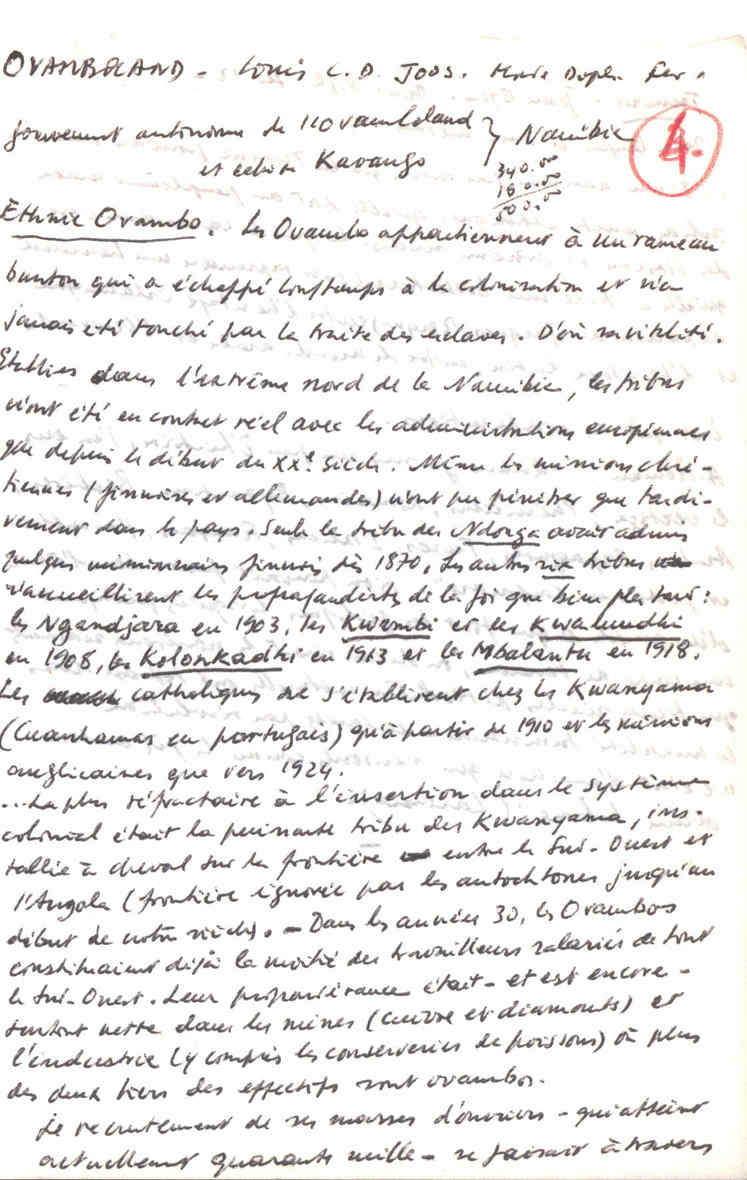 OVAMBOLAND - Louis C. D. JOOS.
gouvernement autonome de l'Ovamboland
et celui de Kavango } Namibie
4.
340.00
160.00
500.00
Ethnie Ovambo. Les Ovambo appartiennent à un rameau
bantou qui a échappé longtemps à la colonisation et n'a
jamais été touché par la traite des esclaves. D'où sa vitalité.
Etablies dans l'extrême nord de la Namibie, les tribus
n'ont été en contact réel avec les administrations européennes
que depuis le début du XXe siècle. Même les missions chré-
tiennes (finnoises et allemandes) n'ont pu pénétrer que tardi-
vement dans le pays. Seule la tribu des Ndonga avait admis
quelques missionnaires finnois dès 1870, les autres six tribus
n'accueillirent les propagandistes de la foi que bien plus tard :
les Ngandjara en 1903, les Kwambi et les Kwaluudhi
en 1908, les Kolonkadhi en 1913 et les Mbalantu en 1918.
Les catholiques ne s'établirent chez les Kwanyama
(Cuanhamas en portugais) qu'à partir de 1910 et les missions
anglicaines que vers 1924.
... La plus réfractaire à l'insertion dans le système
colonial était la puissante tribu des Kwanyama, ins-
tallée à cheval sur la frontière entre le Sud-Ouest et
l'Angola (frontière ignorée par les autochtones jusqu'au
début de notre siècle). - Dans les années 30, les Ovambos
constituaient déjà la moitié des travailleurs salariés de tout
le Sud-Ouest. Leur prépondérance était - et est encore -
surtout nette dans les mines (cuivre et diamants) et
l'industrie (y compris les conserveries de poissons) où plus
des deux tiers des effectifs sont ovambos.
Le recrutement de ses masses d'ouvriers - qui atteint
actuellement quarante mille - se faisait à travers